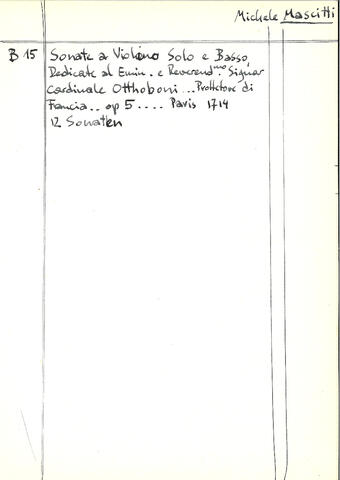 Michele Mascitti
B 15 Sonate a Violino Solo e Basso,
Dedicate al Emin. e Reverend.mo Signor
Cardinale Otthoboni ... Protettore di
Francia .. op 5 .... Paris 1714
12 Sonaten